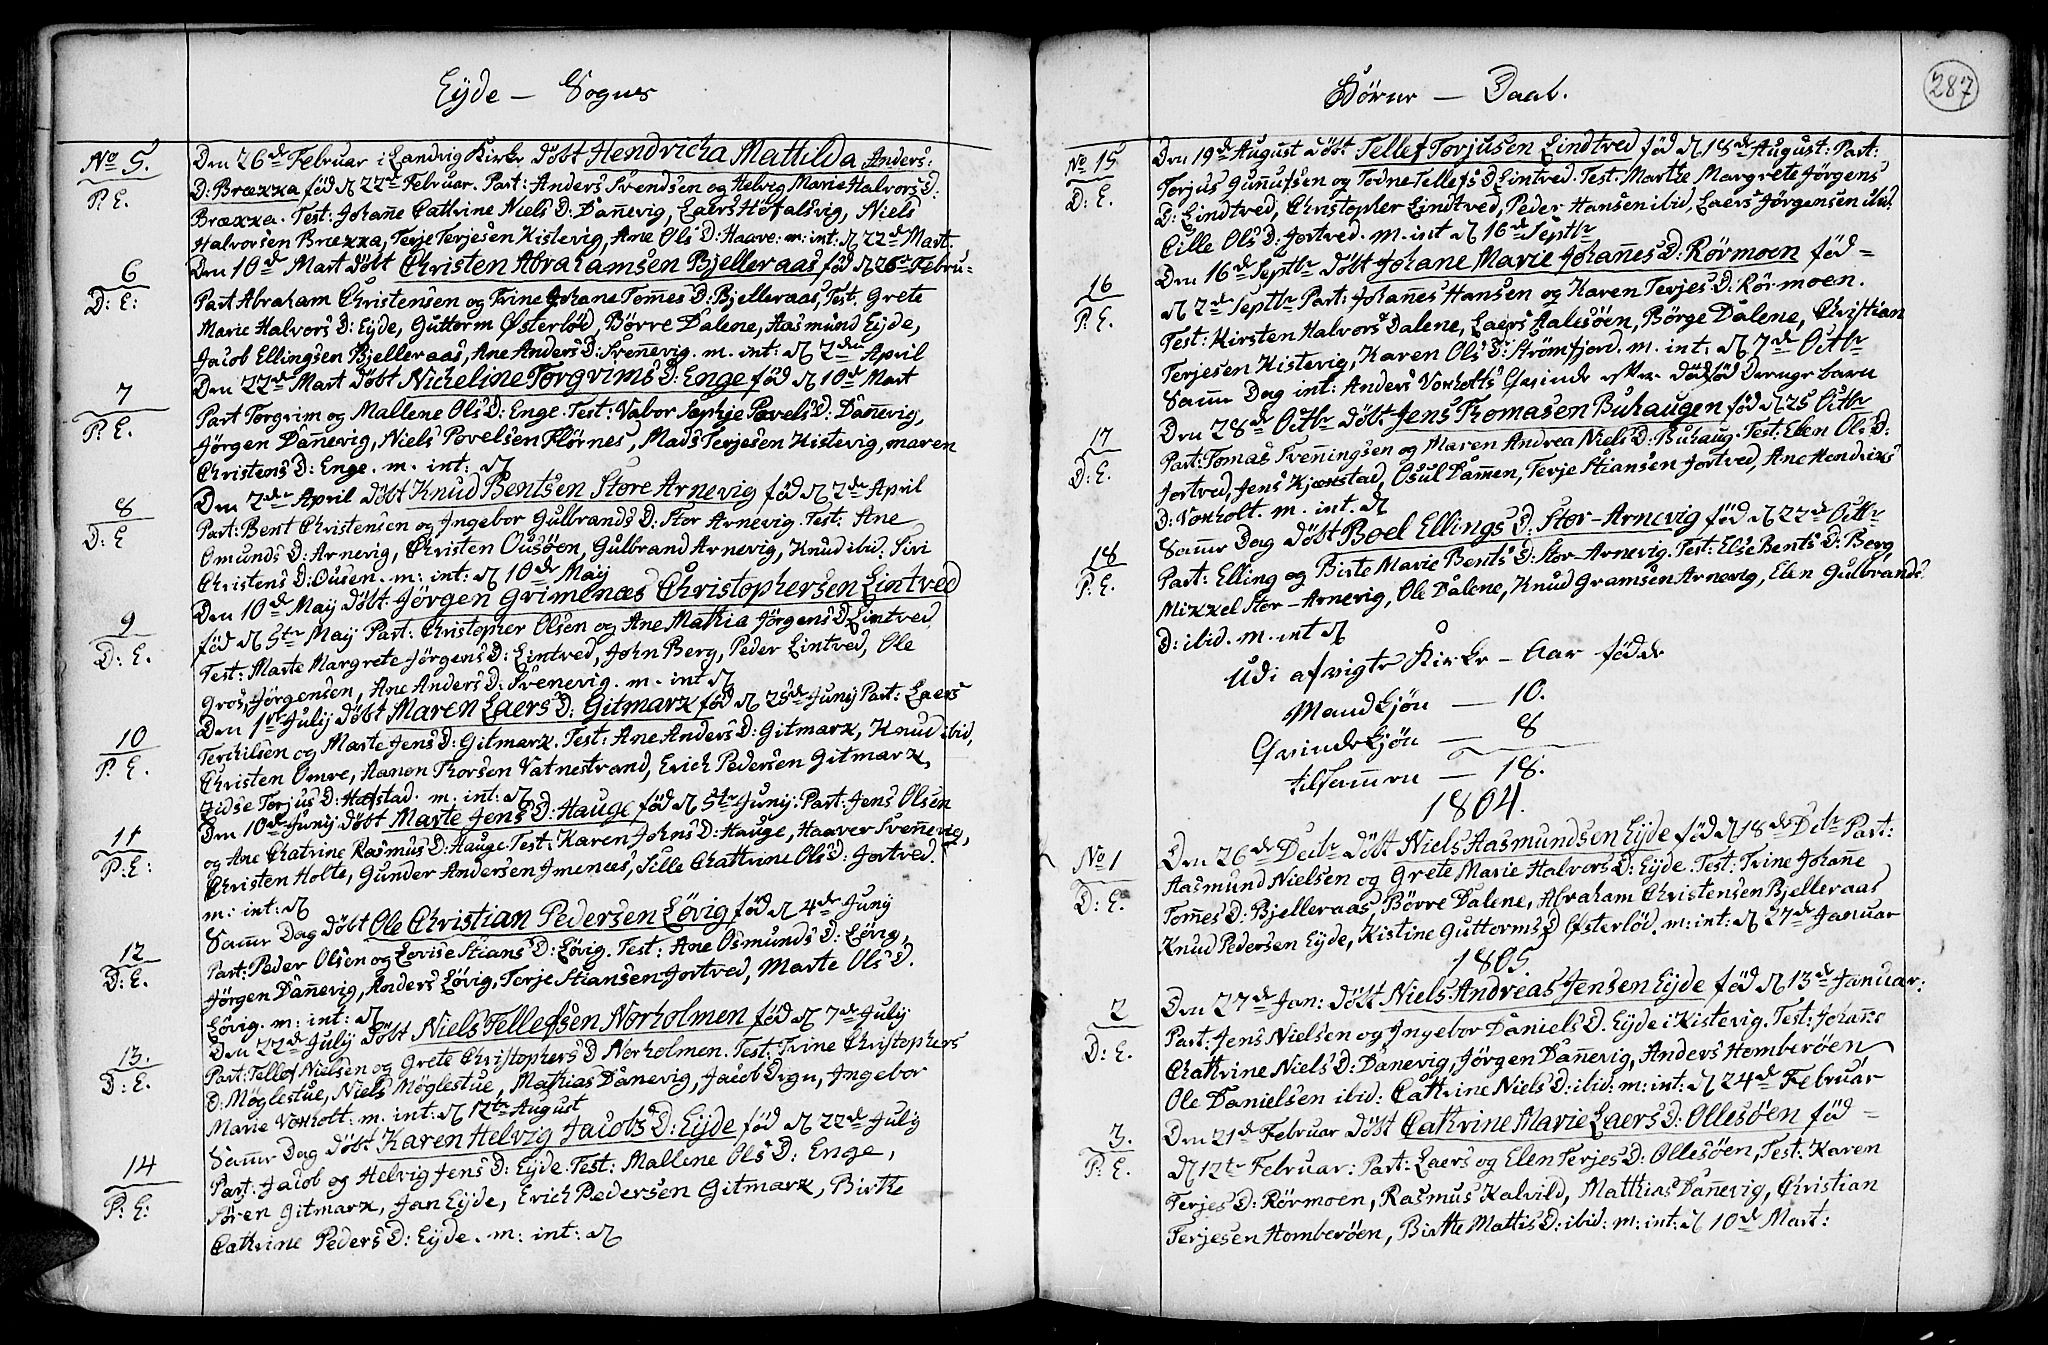 Eyde — Sogns
No 5.
P. E.
Den 26de Februar i Landvig Kirke døbt Hendricha Mattilda Anders:
D: Brexxa fød d 22de Februar. Part: Anders Svendsen og Helvig Marie Halvors D.
Brexxa. Test: Johañe Cathrine Niels D: Dañevig, Laers Høfalsvig, Niels
Halvorsen Brexxa, Terje Terjesen Kistevig, Ane Ols D: Haave: m: int: d 22de Mart.
6
D: E:
Den 10de Mart døbt Christen Abrahamsen Bjelleraas fød d 26de Febru-
Part Abraham Christensen og Trine Johane Tomes D: Bjelleraas, Test. Grete
Marie Halvors D: Eyde, Guttorm Østerlød, Børre Dalene, Aasmund Eyde,
Jacob Ellingsen Bjelleraas, Ane Anders D: Sveñevig. m. int: d 2den April
7
P: E.
Den 22de Mart døbt Nicheline Torgrims D: Enge fød d 10de Mart
Part Torgrim og Mallene Ols D: Enge. Test: Vabor Sophje Povels D: Dañevig,
Jørgen Dañevig, Niels Povelsen Flørnes, Mads Terjesen Kistevig, maren
Christens D: Enge. m. int: d
8
D: E
Den 2den April døbt Knud Bentsen Store Arnevig fød d 2den April
Part: Bent Christensen og Ingebor Gulbrands D: Stor Arnevig. Test: Ane
Omunds D: Arnevig, Christen Ousøen, Gulbrand Arnevig, Knud ibid. Siri
Christens D: Ousen. m: int: d 10de May
9
D: E.
Den 10de May døbt. Jørgen Grimenæs Christophersen Lintved
fød d 5te May Part: Christopher Olsen og Ane Mathia Jørgens D Lintved,
Test: Marte Margrete Jørgens D: Lintved, John Berg, Peder Lintved, Ole
Gros, Jørgensen, Ane Anders D: Svenevig. m. int d
10
P: E.
Den 1ste Julij døbt Maren Laers D: Gitmarx fød d 25de Junij Part: Laers
Terchilsen og Marte Jens D: Gitmarx. Test: Ane Anders D: Gitmarx, Knud ibid,
Christen Omre, Aanon Thorsen Vatnestrand, Erich Pedersen Gitmarx,
Zidse Torjus D: Hafstad. m. int: d
11
P: E:
Den 10de Junij døbt Marte Jens D: Hauge fød d 5te Junij. Part: Jens Olsen
og Ane Chatrine Rasmus D: Hauge. Test: Karen Johns D: Hauge, Haaver Sveñevig,
Christen Holte, Gunder Andersen Imenees, Sille Chattrine Ols D: Jortved.
m: int: d
12
D: E.
Same Dag døbt Ole Christian Pedersen Løvig fød d 4de Junÿ
Part: Peder Olsen og Lovise Stians D: Løvig. Test: Ane Osmunds D: Løvig,
Jørgen Dañevig, Anders Løvig, Terje Stiansen Jortved, Marte Ols D.
Løvig. m: int: d
13.
D: E.
Den 22de Julÿ døbt Niels Tellefsen Norholmen fød d 7de Julij
Part: Tellef Nielsen og Grete Christophers D Norholmen. Test: Trine Christophers
D: Møglestue, Niels Møglestue, Mathias Dañevig, Jacob Dign, Ingebor
Marie Voxholt. m. int: d 12te August
14
P: E:
Same Dag døbt Karen Helvig Jacobs D: Eyde fød d 22de Julij
Part: Jacob og Helvig Jens D: Eyde. Test: Mallene Ols D: Enge,
Søren Gitmarx, Jan Eyde, Erich Pedersen Gitmarx, Birthe
Cathrine Peders D: Eyde. m: int: d
Børne — Daab.
287
No 15
D: E.
Den 19de August døbt Tellef Torjusen Lindtved fød d 18de August: Part:
Torjus Guñufsen og Todne Tellefs D Lintved. Test. Marthe Margrete Jørgens
D: Lindtved, Christopher Lindtved, Peder Hansen ibid, Laers Jørgensen ibid.
Cille Ols D: Jortved. m. int d 16de Septbr
16
P: E.
Den 16de Septbr døbt Johane Marie Johañes D: Rørmoen fød =
d 2de Septbr Part: Johañes Hansen og Karen Terjes D: Rørmoen.
Test: Kirsten Halvors Dalene, Laers Aalesøen, Børge Dalene, Christian
Terjesen Kistevig, Karen Ols D: Strømfjord. m. int. d 7de Octbr
Same Dag int: Anders Voxholts Qvinde efter dødfød Drenge barn
17
D: E.
Den 28de Octbr døbt. Jens Thomasen Buhaugen fød d 25 Octbr
Part: Tomas Sveñingsen og Maren Andrea Niels D: Buhaug. Test: Elen Ols D:
Jortved, Jens Kjexstad, Osul Damen, Terje Stiansen Jortved, Ane Hendrixs
D: Voxholt. m. int. d
18
P: E.
Same Dag døbt Boel Ellings D: Stor-Arnevig fød d 22de Octbr
Part: Elling og Birte Marie Bents D: Stor-Arnevig. Test: Else Bents D: Berg,
Mixxel Stor-Arnevig, Ole Dalene, Knud Gramsen Arnevig, Elen Gulbrands
D: ibid. m. int d
Udi afvigte Kirke-Aar fødde
Mandkjøn — 10.
Qvindekjøn — 8
tilsamen — 18.
1804.
No 1
D: E.
Den 26de Decbr døbt Niels Aasmundsen Eyde fød d 18de Decbr Part:
Aasmund Nielsen og Grete Marie Halvors D: Eyde. Test: Trine Johañe
Tomes D: Bjelleraas, Børre Dalene, Abraham Christensen Bjelleraas
Knud Pedersen Eyde, Kistine Guttorms D Østerlød. m: int: d 27de Januar
1805
2
D: E.
Den 27de Jan: døbt Niels Andreas Jensen Eyde fød d 13de Januar:
Part: Jens Nielsen og Ingebor Daniels D. Eyde i Kistevig. Test: Johañe
Chathrine Niels D: Dañevig, Jørgen Dañevig, Anders Homberøen
Ole Danielsen ibid: Cathrine Niels D: ibid: m: int: d 24de Februar
3.
P: E.
Den 21de Februar døbt Cathrine Marie Laers D: Ollesøen fød =
d 12te Februar: Part: Laers og Elen Terjes D: Ollesøen, Test: Karen
Terjes D: Rørmoen, Rasmus Kalvild, Matthias Dañevig, Christian
Terjesen Homberøen, Birthe Mattis D: ibid: m: int: d 10de Mart: